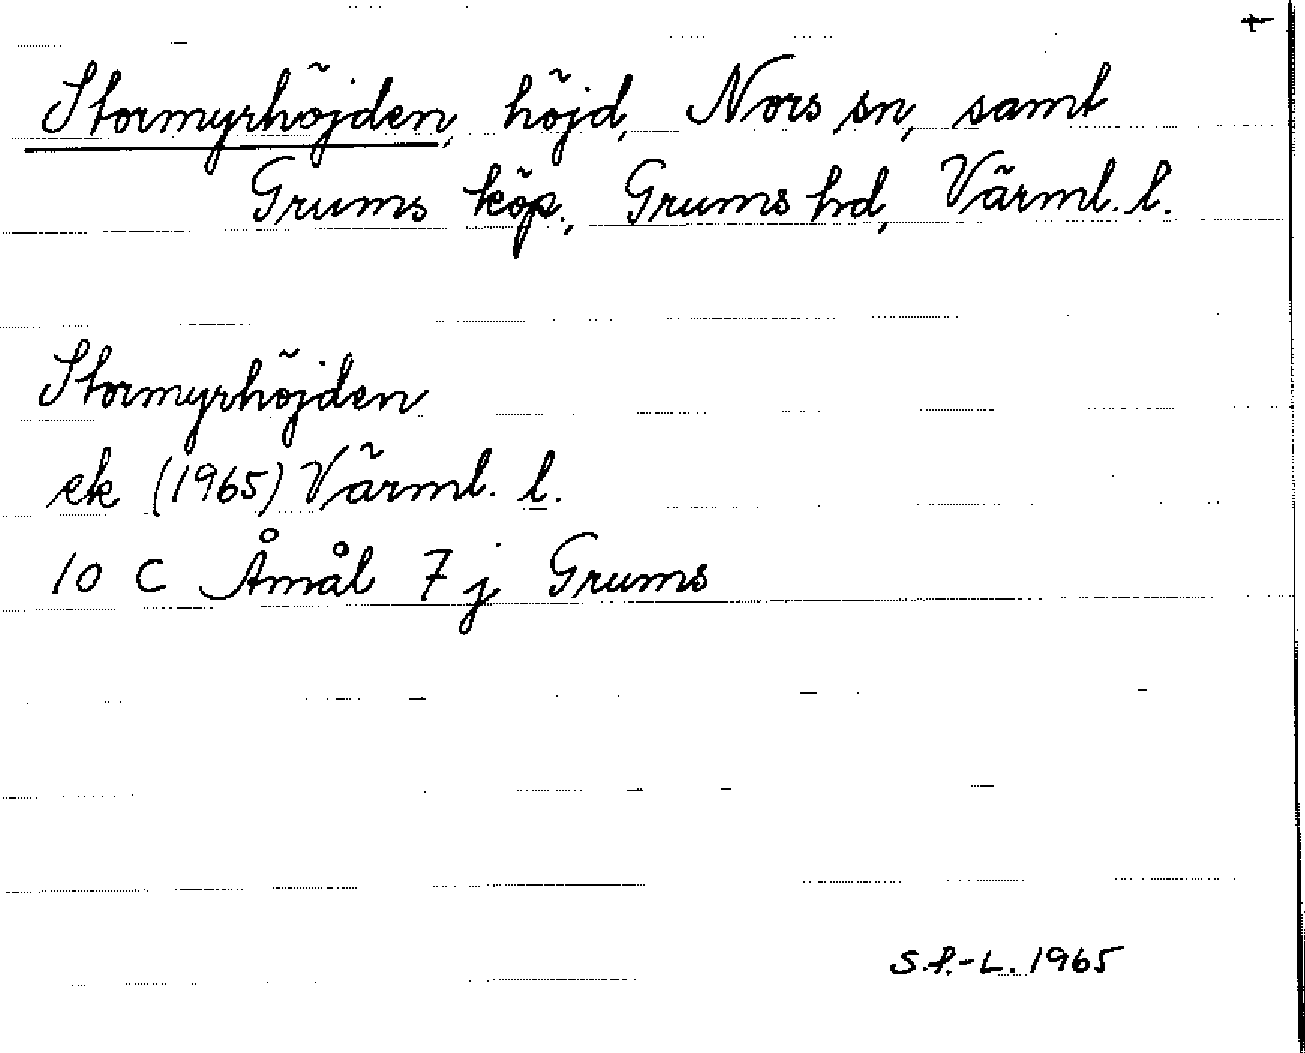 Stormyrhöjden, höjd, Nors sn, samt
Grums köp., Grums hd, Värml. l.
Stormyrhöjden
ek (1965) Värml. l.
10 C Åmål 7 j Grums
S.P.-L. 1965